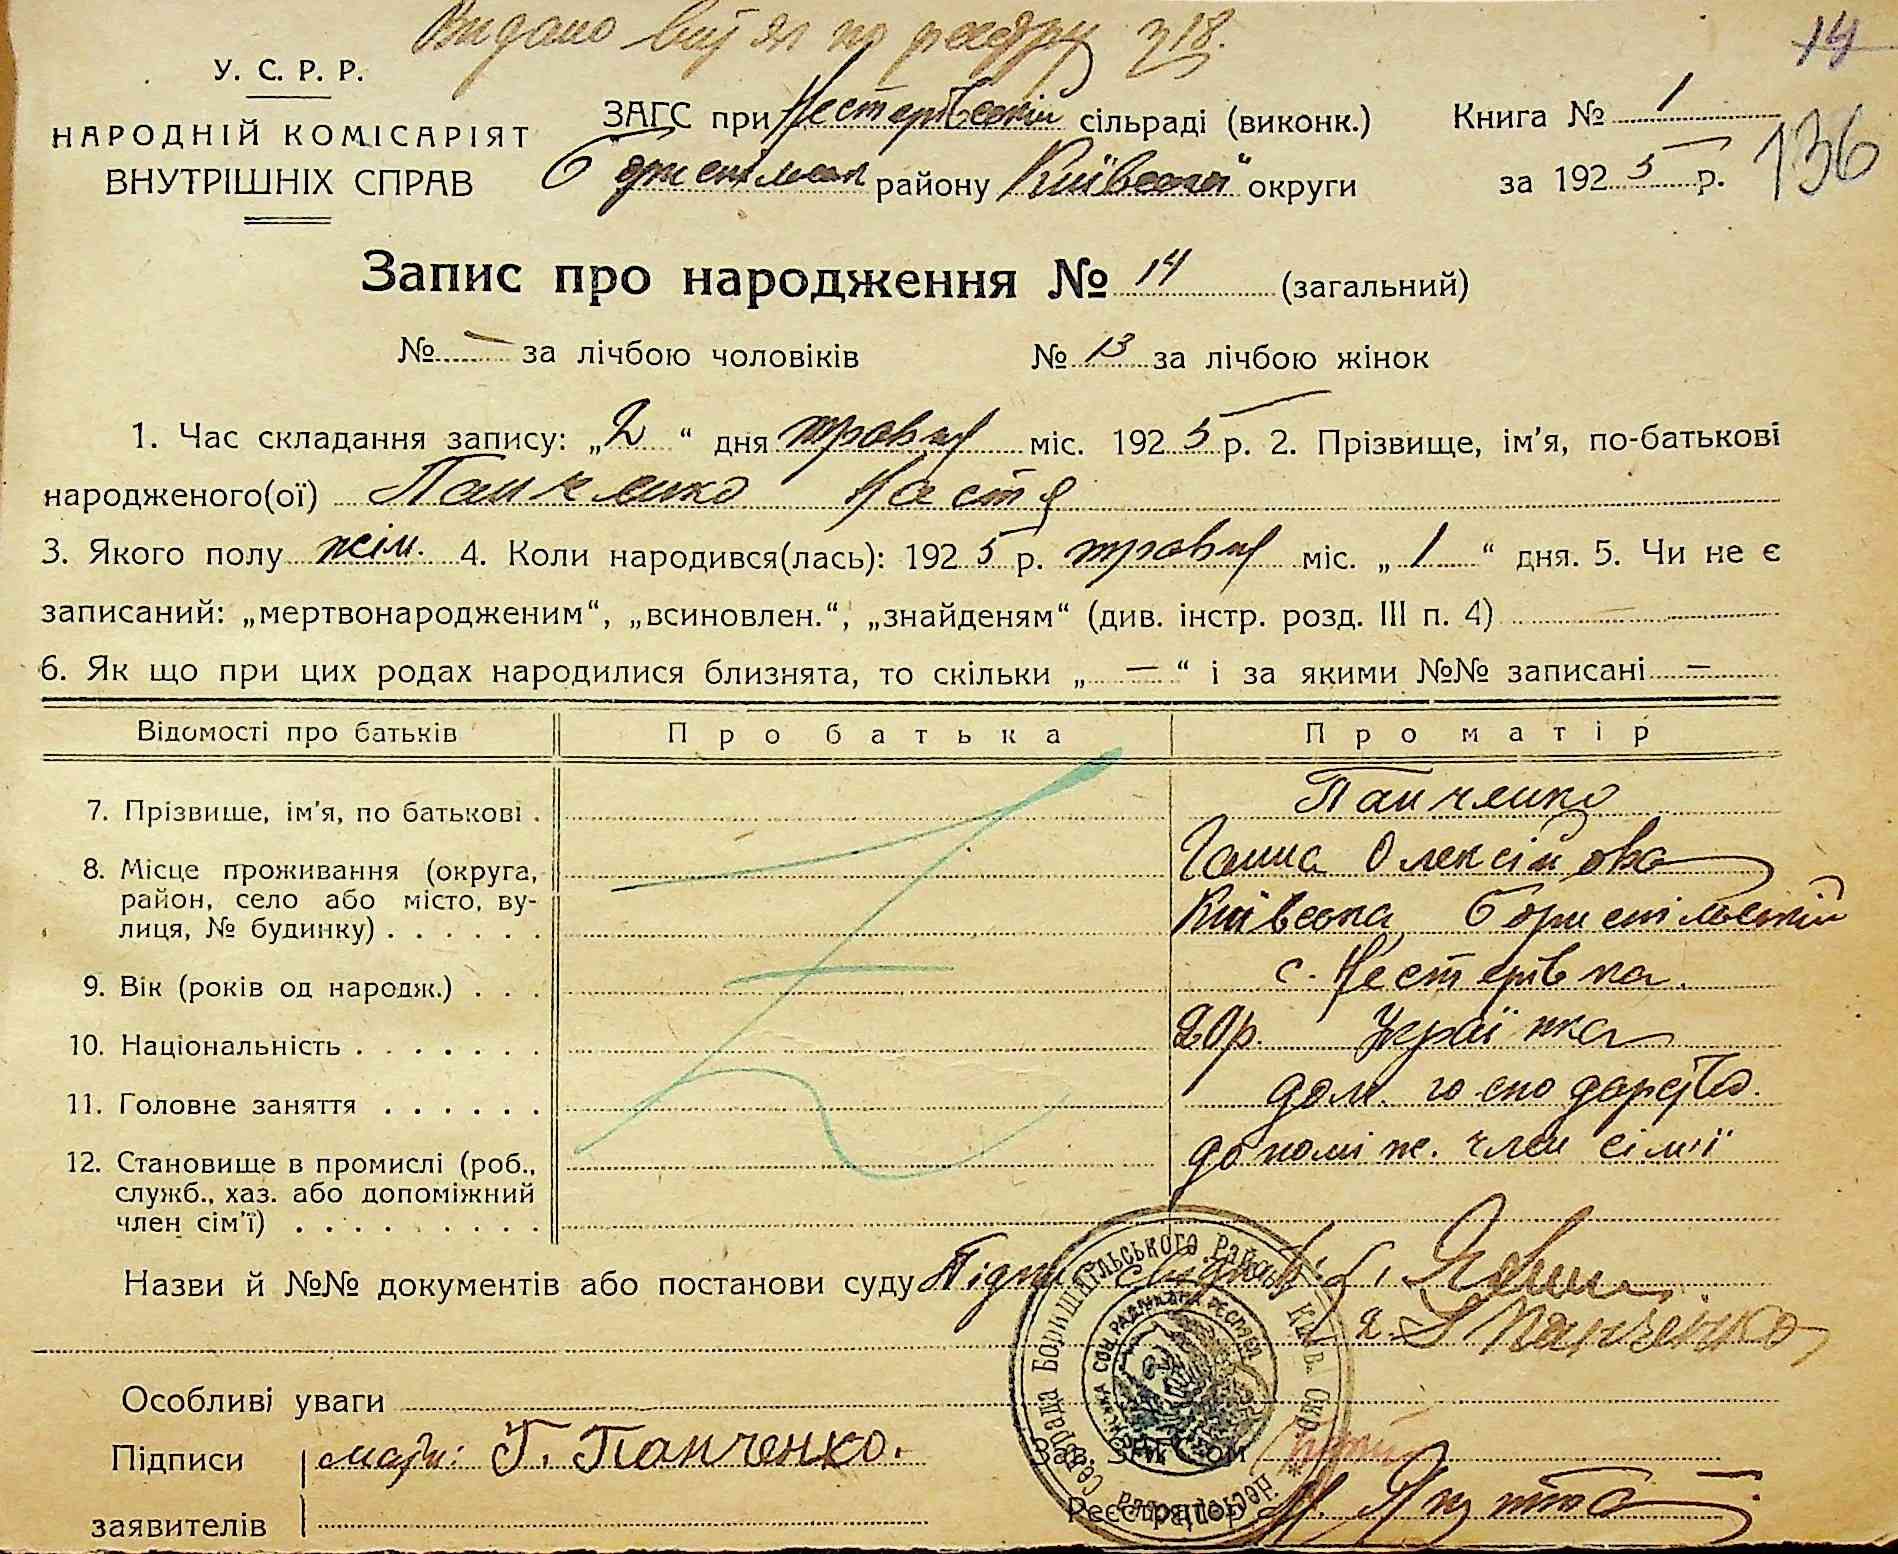 Видано витяг по реєстру 318.
14
У. С. Р. Р.
НАРОДНІЙ КОМІСАРІЯТ
ВНУТРІШНІХ СПРАВ
ЗАГС при Нестерівській сільраді (виконк.)
Бориспільск району Київської округи
Книга № 1
за 1925 р.
136
Запис про народження № 14 (загальний)
№ — за лічбою чоловіків № 13 за лічбою жінок
1. Час складання запису: „2“ дня травня міс. 1925 р. 2. Прізвище, ім'я, по-батькові
народженого(ої) Панченко Настя
3. Якого полу жін. 4. Коли народився(лась): 1925 р. травня міс. „1“ дня. 5. Чи не є
записаний: „мертвонародженим“, „всиновлен.“, „знайденям“ (див. інстр. розд. III п. 4)
6. Як що при цих родах народилися близнята, то скільки „—“ і за якими №№ записані —
Відомості про батьків Про батька Про матір
7. Прізвище, ім'я, по батькові . Панченко
Ганна Олексійовна
8. Місце проживання (округа,
район, село або місто, ву-
лиця, № будинку) . . . . . .
Київська Бориспільский
с. Нестерівка.
9. Вік (років од народж.) . . .
20р. Українка
10. Національність . . . . . . .
дом. господарство.
11. Головне заняття . . . . . .
допоміж. член сімії
12. Становище в промислі (роб.,
служб., хаз. або допоміжний
член сім'ї) . . . . . . . . .
Назви й №№ документів або постанови суду
2. Панченко
Особливі уваги
Підписи мати: Г. Панченко.
заявителів
Зав. ЗАГСом
Реєстратор